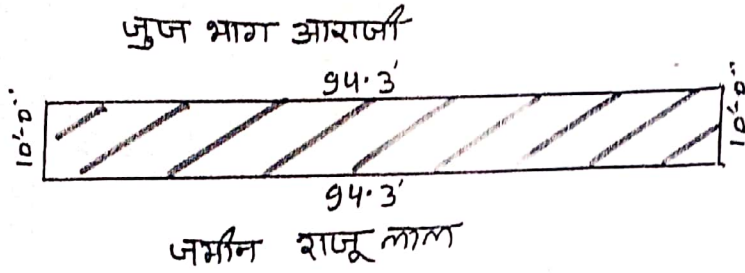 जुज भाग आराजी
94.3'
10'-0"
10'-0"
94.3'
जमीन राजू लाल